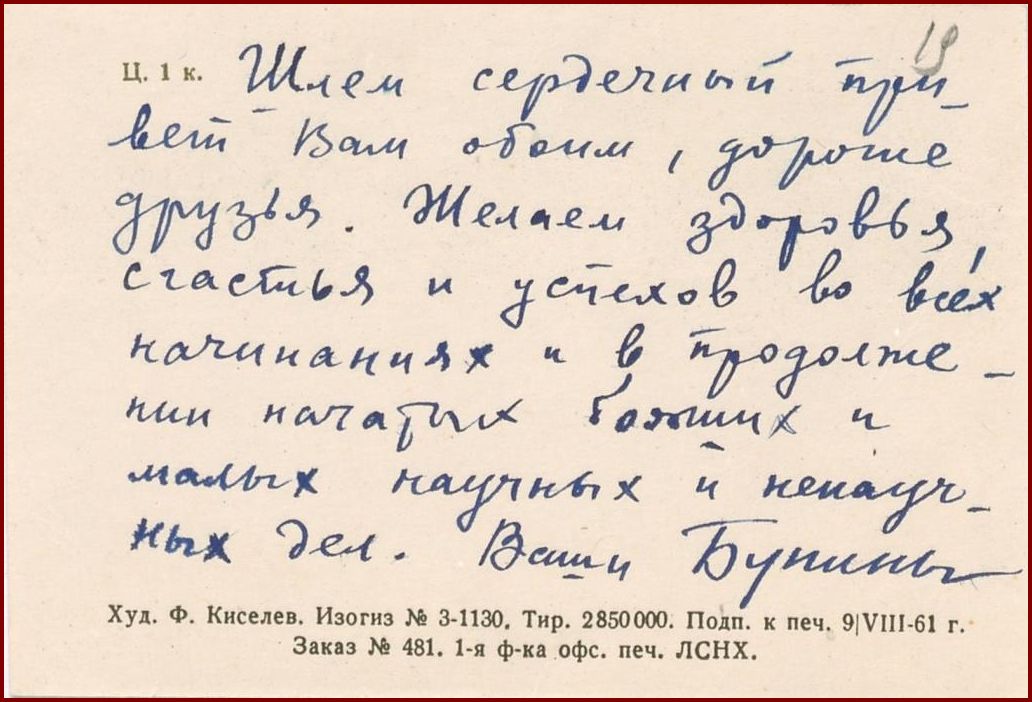 19
Ц. 1 к. Шлем сердечный при-
вет Вам обоим, дорогие
друзья. Желаем здоровья,
счастья и успехов во всех
начинаниях и в продолже-
нии начатых больших и
малых научных и ненауч-
ных дел. Ваши Бунины
Худ. Ф. Киселев. Изогиз № 3-1130. Тир. 2850000. Подп. к печ. 9|VIII-61 г.
Заказ № 481. 1-я ф-ка офс. печ. ЛСНХ.